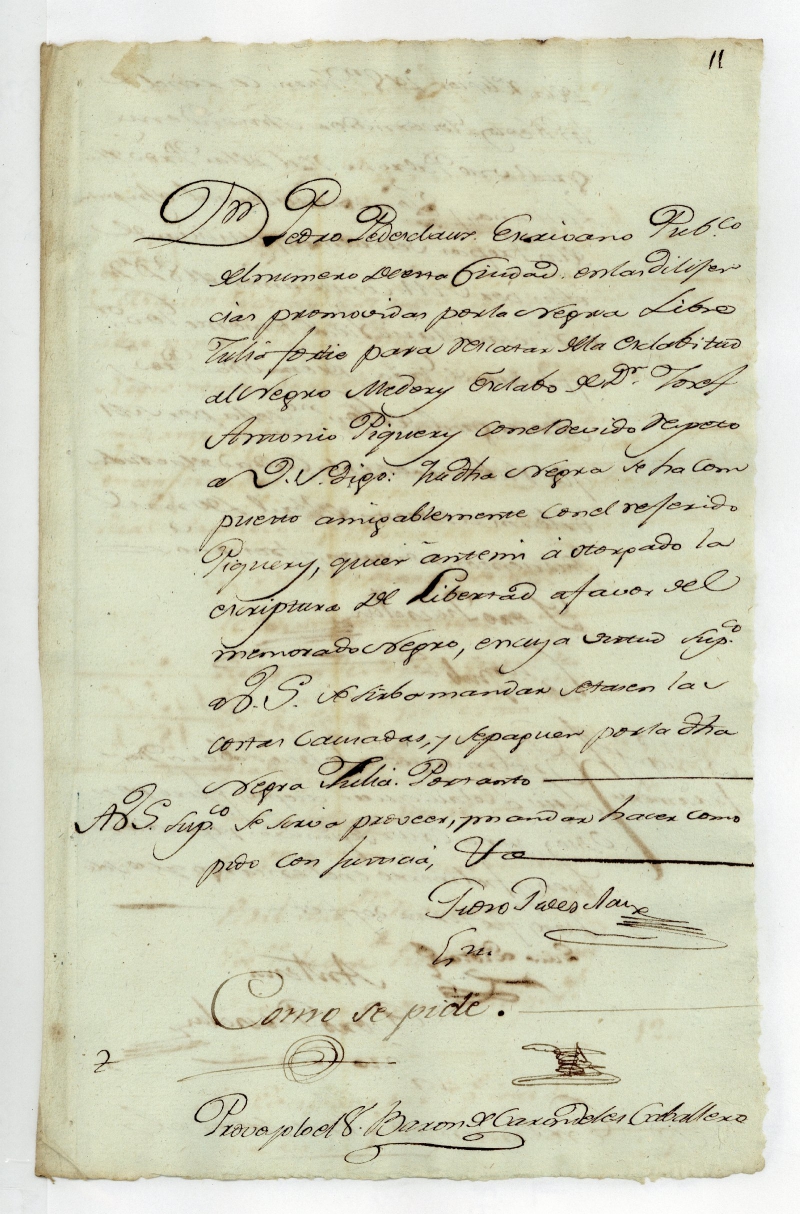 11
Dn Pedro Pedesclaux Escrivano Pub.co
del numero de esta Ciudad en las dilijen
cias promovidas por la Negra Libre
Julia para rescatar de la esclabitud
al Negro Medery Esclabo de Dn. Josef
Antonio Piquery con el devido respeto
a V. S. digo: hu dha Negra se ha com
puesto amigablemente con el referido
Piquery, quien ante mi à otorgado la
escriptura de Libertad a favor del
memorado Negro, en cuya virtud sup.co
a V. S. se sirba mandar se tasen las
costas causadas, y se paguen por la dha
Negra Julia. Portanto
A V. S. sup.co se sirva proveer, y mandar hacer como
pido con justicia, Va
Pedro Pedesclaux
Em
Como se pide.
Proveyolo el S. Baron de Carondelet Caballero